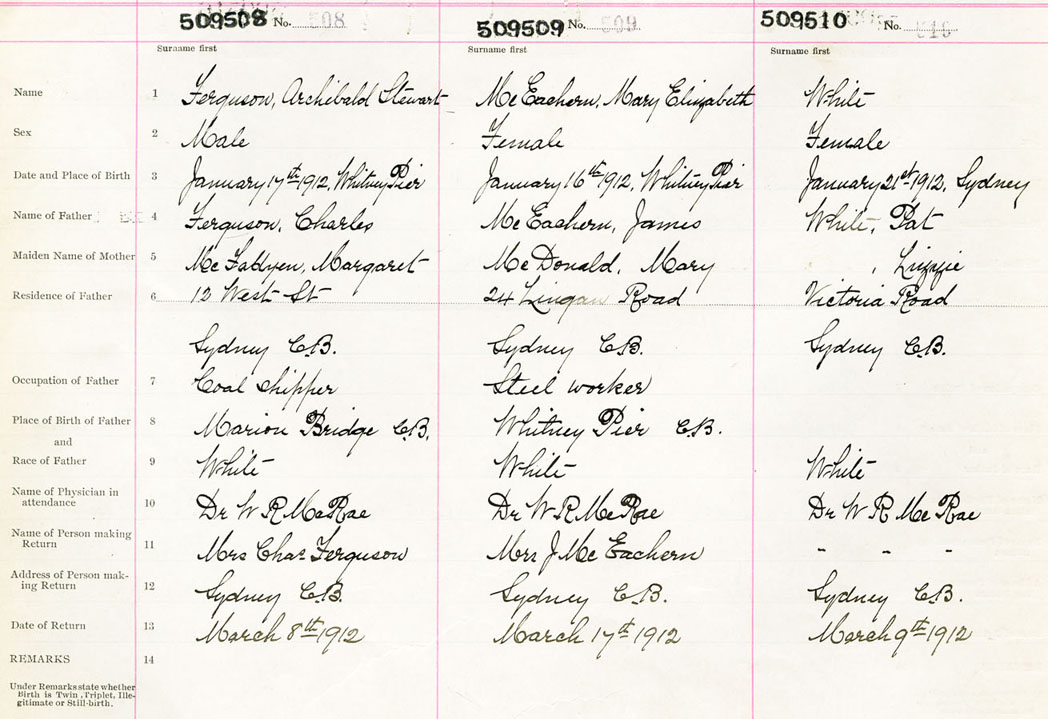 509508 No. 508 509509 No. 509 509510 No. 510
Surname first Surname first Surname first
Name 1 Ferguson, Archibald Stewart McEachern, Mary Elizabeth White
Sex 2 Male Female Female
Date and Place of Birth 3 January 17th 1912, Whitney Pier January 16th 1912, Whitney Pier January 21st 1912, Sydney
Name of Father 4 Ferguson, Charles McEachern, James White, Pat
Maiden Name of Mother 5 McFadyen, Margaret McDonald, Mary , Lizzie
Residence of Father 6 12 West St 24 Lingan Road Victoria Road
Sydney C.B. Sydney C.B. Sydney C.B.
Occupation of Father 7 Coal shipper Steel worker
Place of Birth of Father 8 Marion Bridge C.B. Whitney Pier C.B.
and
Race of Father 9 White White White
Name of Physician in
attendance 10 Dr W R McRae Dr W R McRae Dr W R McRae
Name of Person making
Return 11 Mrs Chas Ferguson Mrs J McEachern - - -
Address of Person mak-
ing Return 12 Sydney C.B. Sydney C.B. Sydney C.B.
Date of Return 13 March 8th 1912 March 17th 1912 March 9th 1912
REMARKS 14
Under Remarks state whether
Birth is Twin, Triplet, Ille-
gitimate or Still-birth.